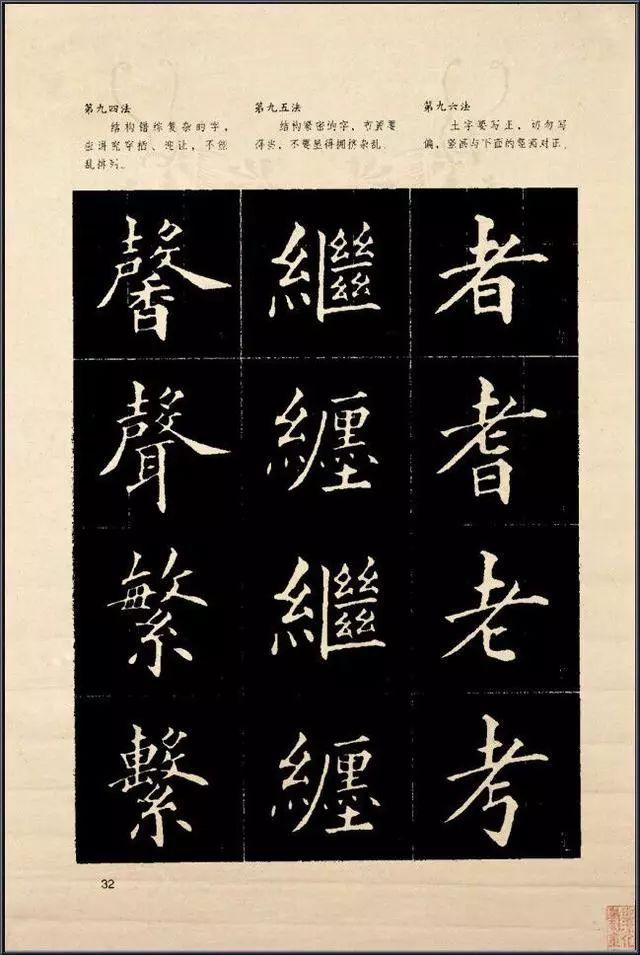 第九四法
结构错综复杂的字，
应讲究穿插、避让，不能
乱排列。
馨
聲
繁
繫
第九五法
结构紧密的字，布置要
得当，不要显得拥挤杂乱。
繼
纏
繼
纏
第九六法
土字要写正，切勿写
偏，竖画与下面的竖画对正。
者
耆
老
考
32